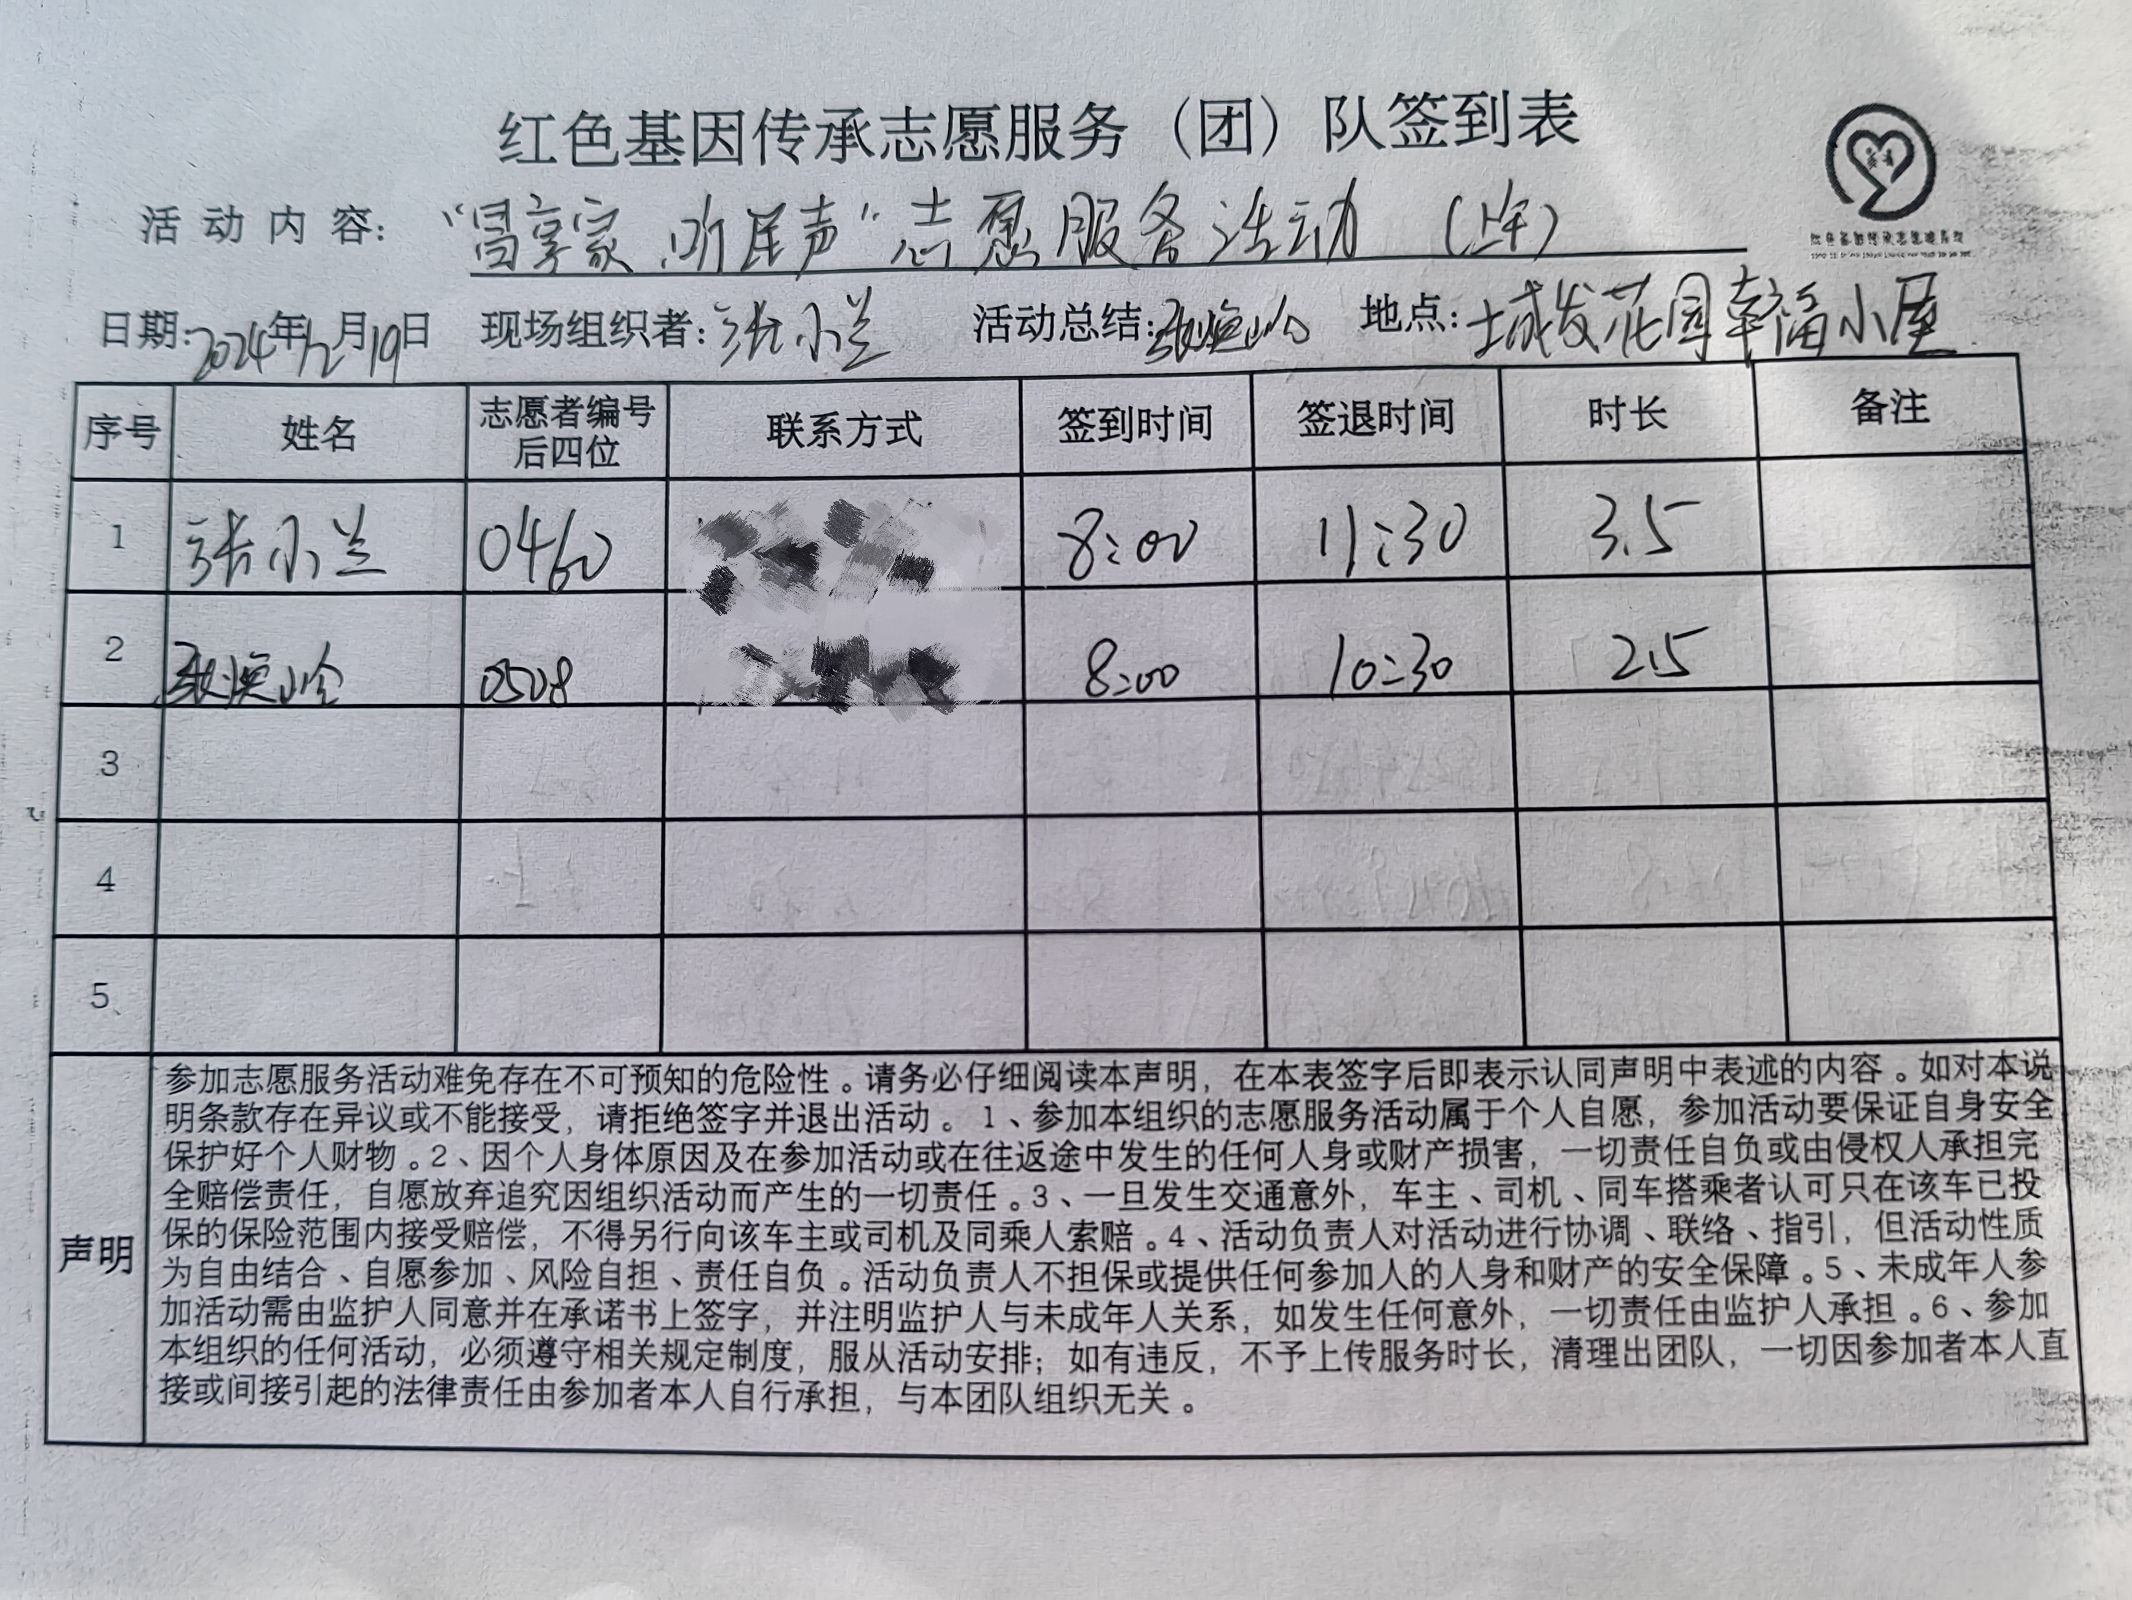 红色基因传承志愿服务（团）队签到表
活动内容：“冒享家 听民声”志愿服务活动（上午）
日期：2024年12月19日 现场组织者：张小兰 活动总结： 地点：城发花园幸福小屋
序号 姓名 志愿者编号后四位 联系方式 签到时间 签退时间 时长 备注
1 张小兰 0460 8:00 11:30 3.5
2 0508 8:00 10:30 2.5
3
4
5、
声明
参加志愿服务活动难免存在不可预知的危险性。请务必仔细阅读本声明，在本表签字后即表示认同声明中表述的内容。如对本说
明条款存在异议或不能接受，请拒绝签字并退出活动。1、参加本组织的志愿服务活动属于个人自愿，参加活动要保证自身安全
保护好个人财物。2、因个人身体原因及在参加活动或在往返途中发生的任何人身或财产损害，一切责任自负或由侵权人承担完
全赔偿责任，自愿放弃追究因组织活动而产生的一切责任。3、一旦发生交通意外，车主、司机、同车搭乘者认可只在该车已投
保的保险范围内接受赔偿，不得另行向该车主或司机及同乘人索赔。4、活动负责人对活动进行协调、联络、指引，但活动性质
为自由结合、自愿参加、风险自担、责任自负。活动负责人不担保或提供任何参加人的人身和财产的安全保障。5、未成年人参
加活动需由监护人同意并在承诺书上签字，并注明监护人与未成年人关系，如发生任何意外，一切责任由监护人承担。6、参加
本组织的任何活动，必须遵守相关规定制度，服从活动安排；如有违反，不予上传服务时长，清理出团队，一切因参加者本人直
接或间接引起的法律责任由参加者本人自行承担，与本团队组织无关。